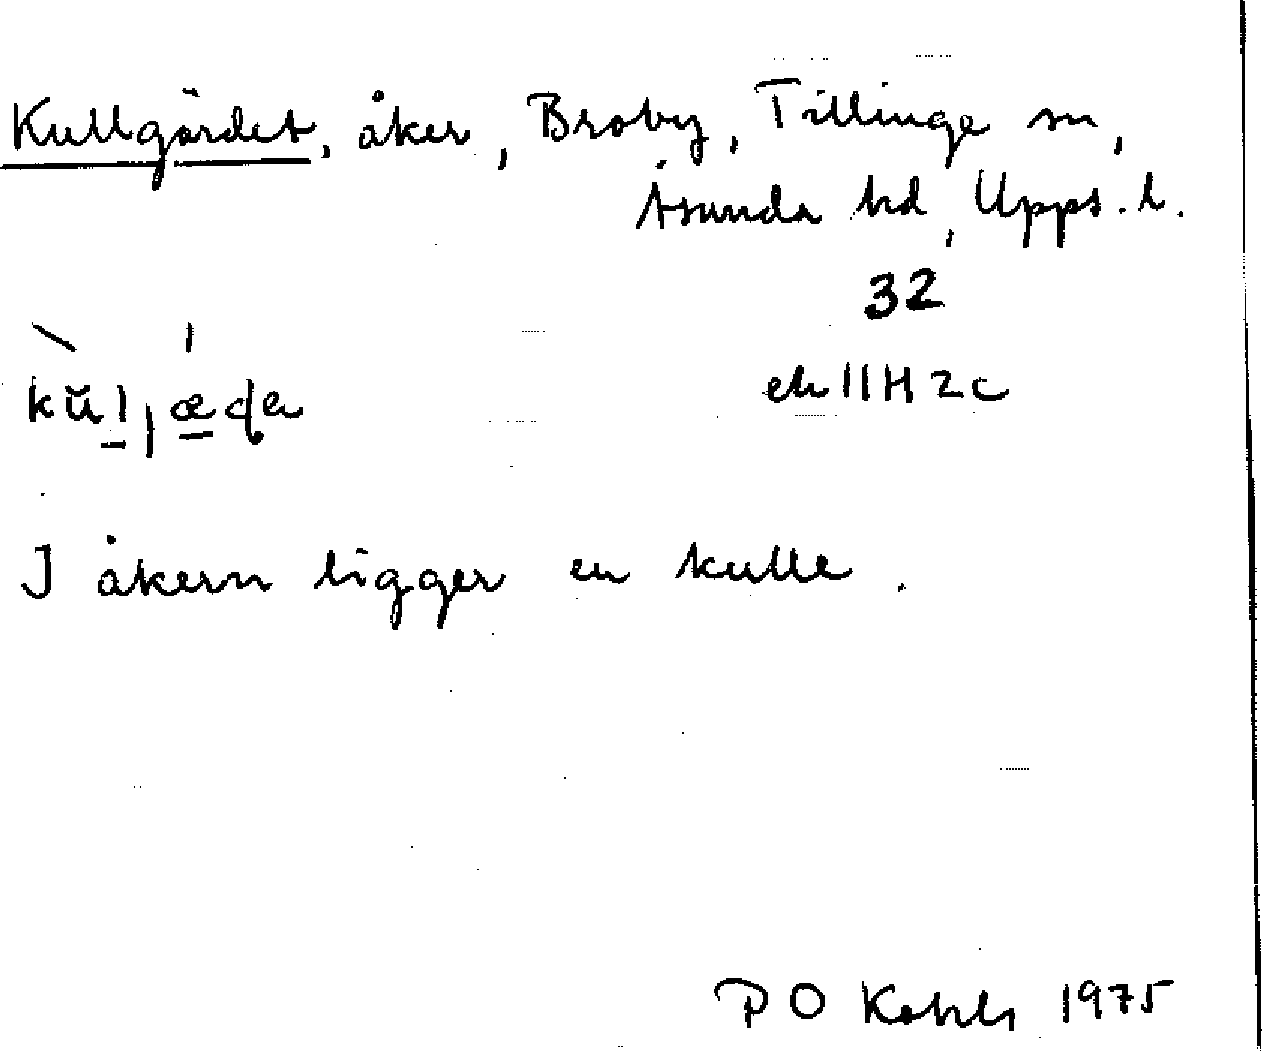 Kullgärdet, åker, Broby, Tillinge sn,
Åsunda hd, Upps. l.
32
ek 11H 2c
I åkern ligger en kulle.
P O 1975